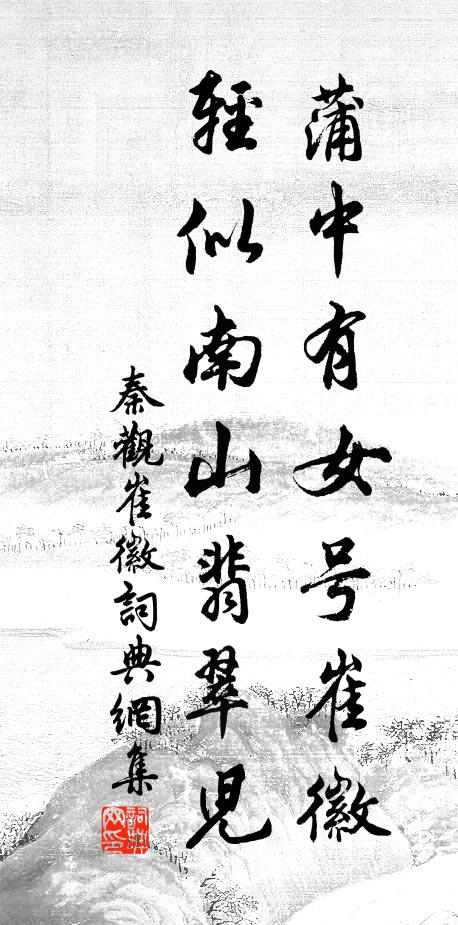 蒲中有女号崔徽
輕似南山翡翠児
秦觀崔徽詞典網集